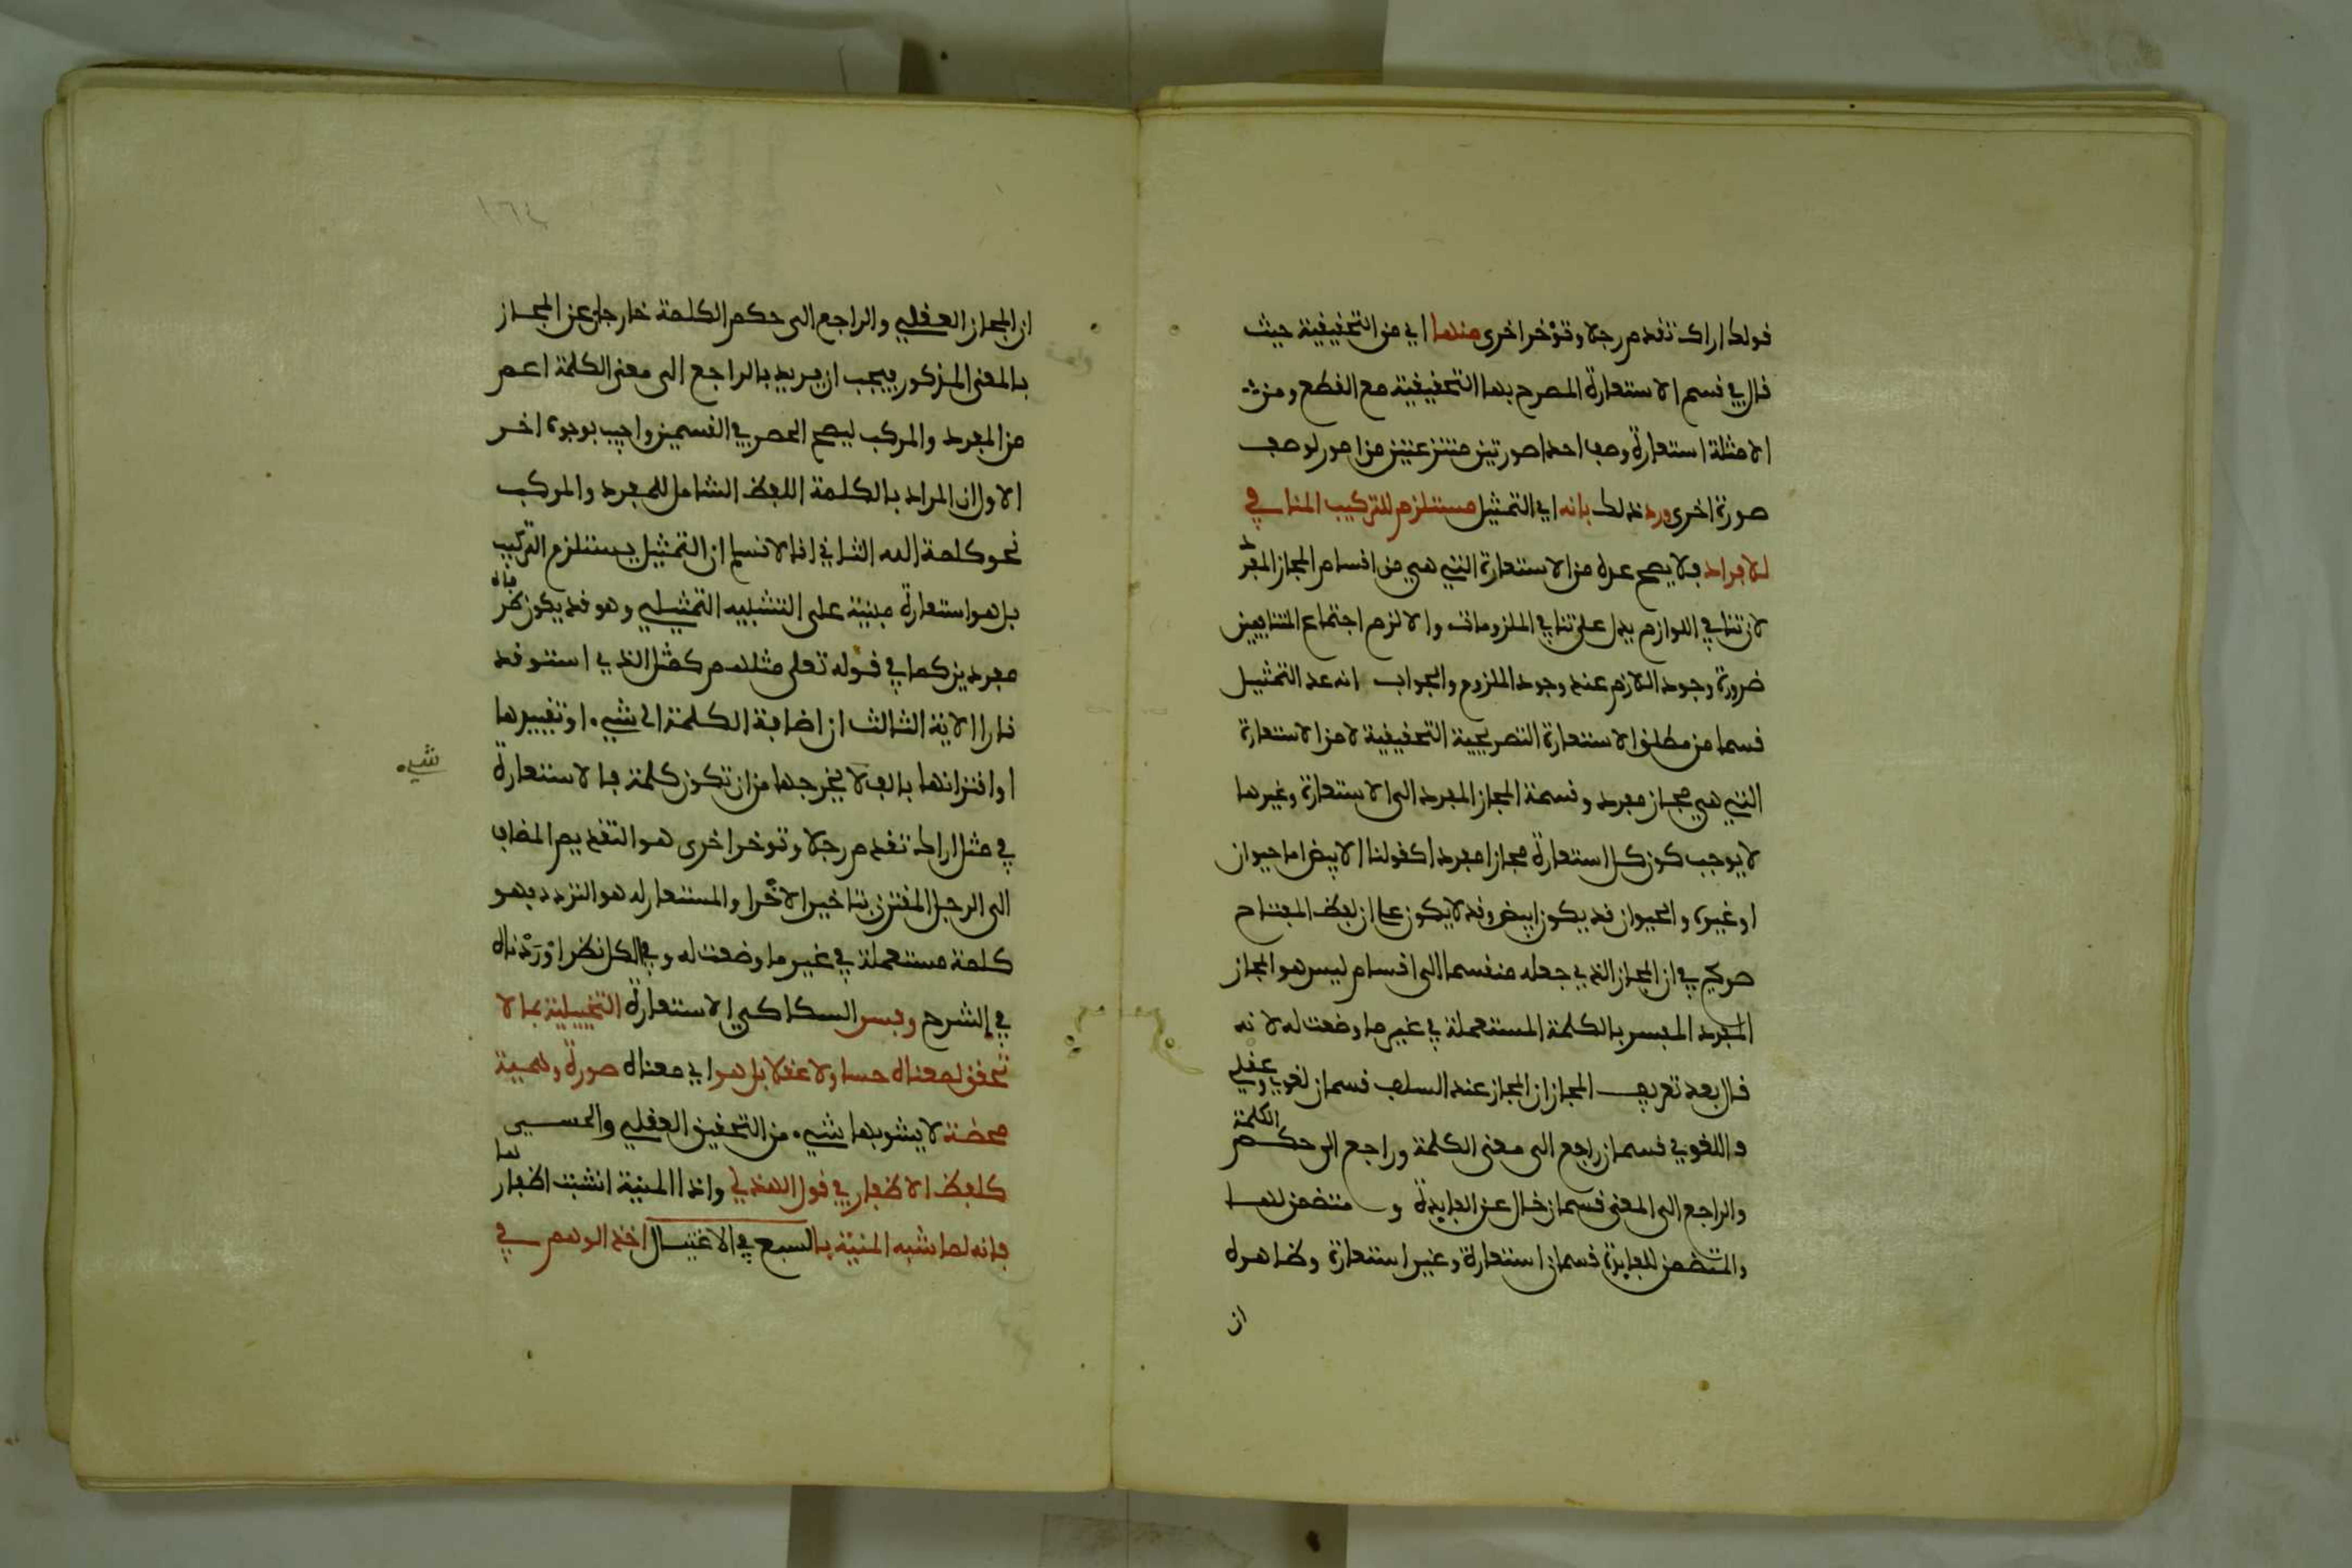 قولك اراك تقدم رجلا وتؤخر اخرى منها اي من التحقيقية حيث
قال في قسم الاستعارة المصرح بها التحقيقية مع القطع ومن
الامثلة استعارة وصف احدا صورتين منتزعتين من امور لوصف
صورة اخرى ورد ذلك بانه اي التمثيل مستلزم للتركيب المنافي
للافراد فلا يصح عده من الاستعارة التي هي من اقسام المجاز المفرد
لان تنافي اللوازم يدل على تنافي الملزومات والا لزم اجتماع المتنافيين
ضرورة وجود اللازم عند وجود الملزوم والجواب انه عد التمثيل
قسما من مطلق الاستعارة التصريحية التحقيقية لا من الاستعارة
التي هي مجاز مفرد وقسمة المجاز المفرد الى الاستعارة وغيرها
لا يوجب كون كل استعارة مجازا مفردا كقولنا الابيض اما حيوان
او غيره والحيوان قد يكون ابيض وقد لا يكون على ان لفظ المفتاح
صريح في ان المجاز الذي جعله منقسما الى اقسام ليس هو المجاز
المفرد المفسر بالكلمة المستعملة في غير ما وضعت له لانه
قال بعد تعريف المجاز ان المجاز عند السلف قسمان لغوي وعقلي
واللغوي قسمان راجع الى معنى الكلمة وراجع الى حكم الكلمة
والراجع الى المعنى قسمان خال عن الفايدة و متضمن لها
والمتضمن للفايدة قسمان استعارة وغير استعارة وظاهره
ان
ان المجاز العقلي والراجع الى حكم الكلمة خارجان عن المجاز
بالمعنى المذكور فيجب ان يريد بالراجع الى معنى الكلمة اعم
من المفرد والمركب ليصح الحصر في القسمين واجيب بوجوه اخر
الاول ان المراد بالكلمة اللفظ الشامل للمفرد والمركب
نحو كلمة الله الثاني انا لا نسلم ان التمثيل يستلزم التركيب
بل هو استعارة مبنية على التشبيه التمثيلي وهو قد يكون طرفاه
مفردين كما في قوله تعلى مثلهم كمثل الذي استوقد
نارا الاية الثالث ان اضافة الكلمة الى شيء او تغييرها
او اقترانها بالف لا يخرجها من ان تكون كلمة فالاستعارة
شيء
في مثل اراك تقدم رجلا وتؤخر اخرى هو التقديم المضاف
الى الرجل المقترن بتاخير الاخرا والمستعار له هو التردد فهو
كلمة مستعملة في غير ما وضعت له وفي الكل نظر اوردناه
في الشرح وفسر السكاكي الاستعارة التخييلية بما لا
تحقق لمعناه حسا ولا عقلا بل هو اي معناه صورة وهمية
محضة لا يشوبها شيء من التحقيق العقلي والحسي
كلفظ الاظفار في قول الهذلي واذا المنية انشبت اظفارها
فانه لما شبه المنية بالسبع في الاغتيال اخذ الوهم في